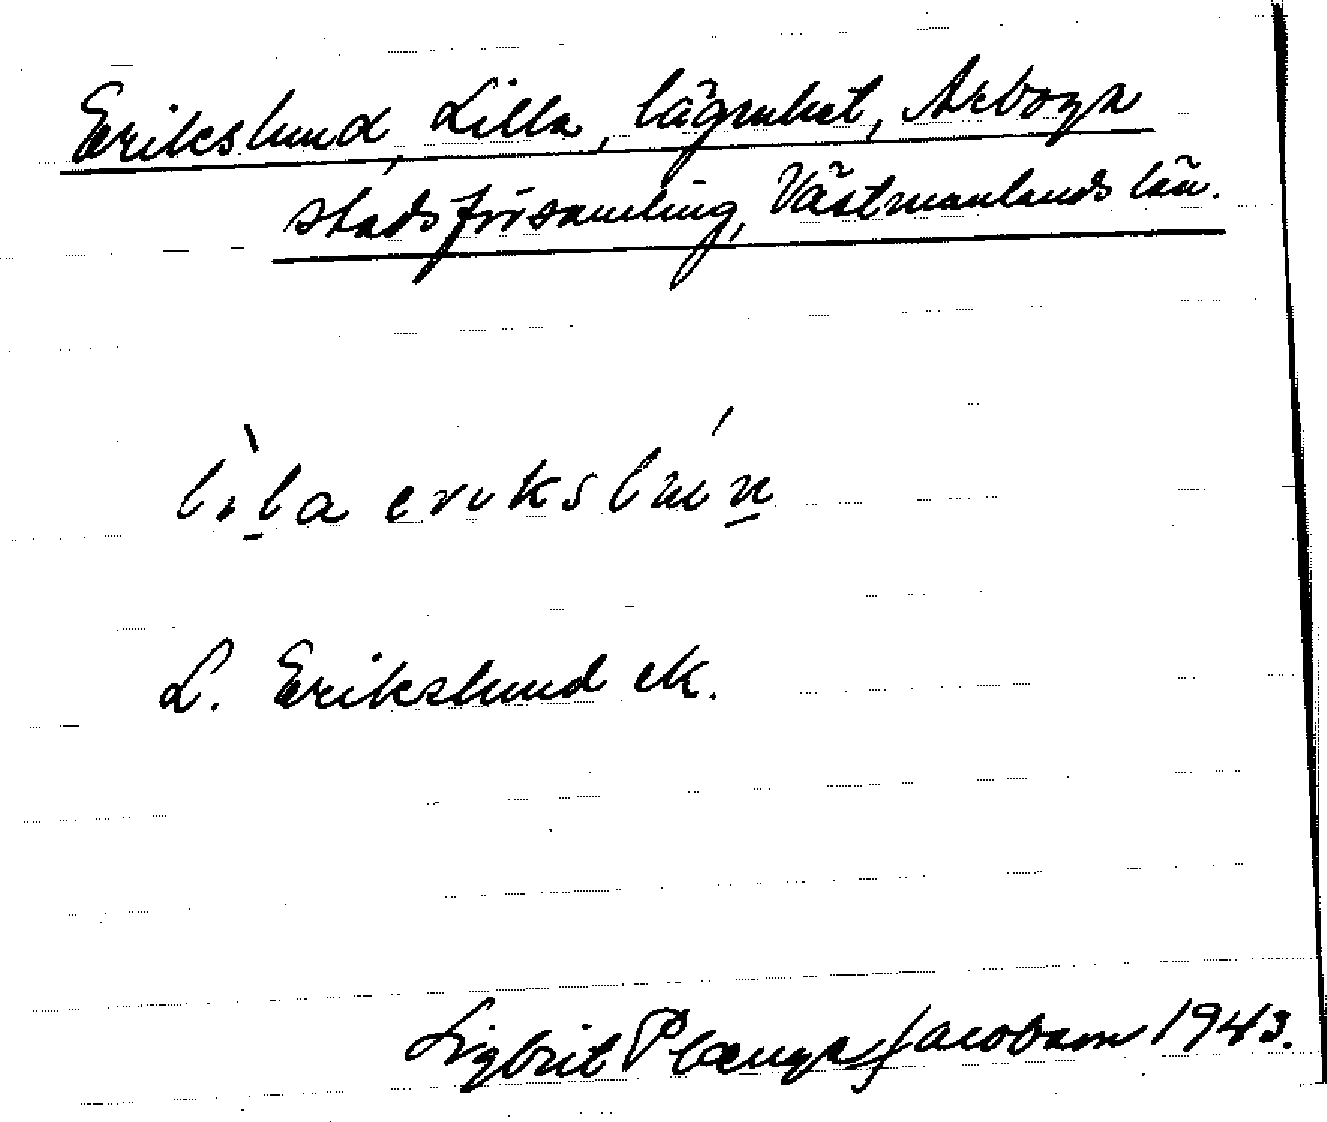 Erikslund, Lilla, lägenhet, Arboga
stadsförsamling, Västmanlands län.
lìla erikslún
L. Erikslund ek.
Sigbrit Plænge Jacobson 1943.